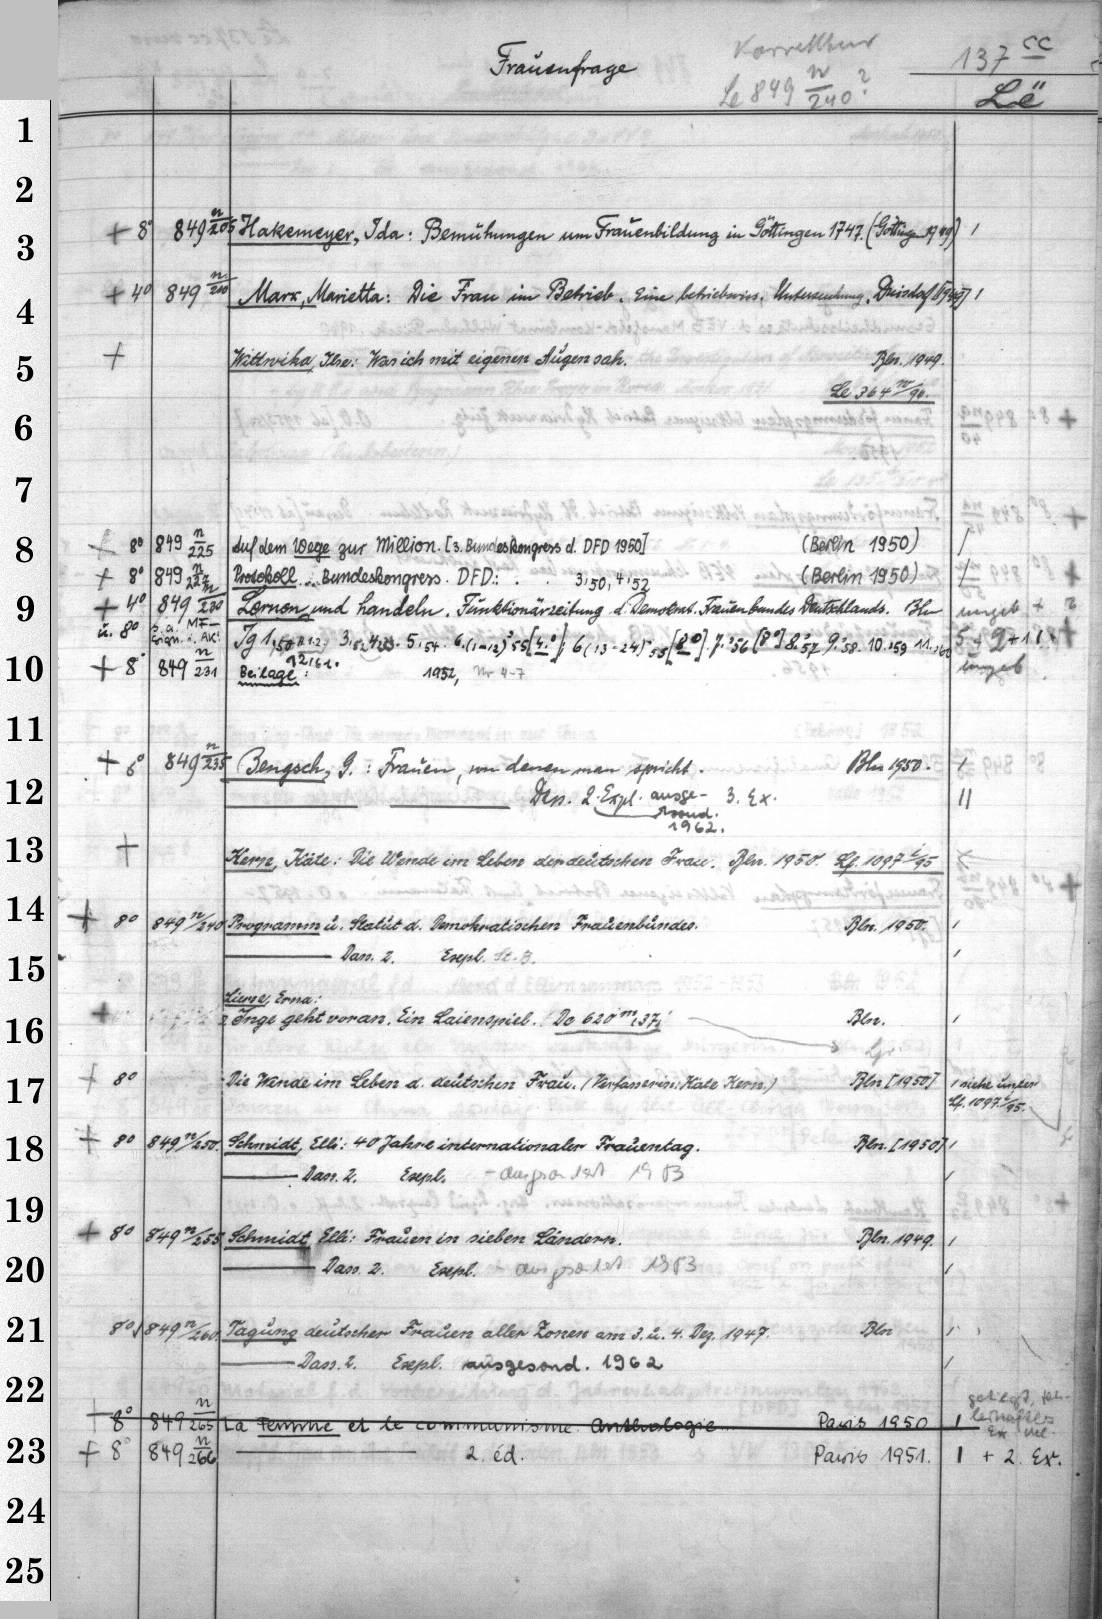 Korrektur
Frauenfrage 137 cc
Le 849 n/240? Lë
1
2
3 + 8° 849 n/205 Hakemeyer, Ida: Bemühungen um Frauenbildung in Göttingen 1747. (Göttingen 1949) 1
4 + 4° 849 n/210 Marx, Marietta: Die Frau im Betrieb. Eine betriebswiss. Untersuchung. Duisdorf [1949] 1
5 + Wittwika, Ilse: Was ich mit eigenen Augen sah. Bln. 1949.
Le 364 m/96.
6
7
8 + 8° 849 n/225 Auf dem Wege zur Million. [3. Bundeskongress d. DFD 1950] (Berlin 1950) /
+ 8° 849 n/227 Protokoll .. Bundeskongress. DFD: . . 3,50, 4,52 (Berlin 1950) /
9 + 4° 849 n/230 Lernen und handeln. Funktionärzeitung d. Demokrat. Frauenbundes Deutschlands. Bln ungeb
u. 8° Jg 1,50 3,52 4,53. 5,54. 6.(1-12) 55 [4.°]; 6(13-24) 55 [8°] 7.56 [8°] 8.57 9.58. 10.59 11.60
12.61.
10 + 8° 849 n/231 Beilage: 1952, Nr 4-7 ungeb
11
+ 8° 849 n/235 Bengsch, G.: Frauen, von denen man spricht. Bln 1950. 1
12 Dass. 2. Expl. ausge- 3. Ex. II
sond.
1962.
13 + Kern, Käte: Die Wende im Leben der deutschen Frau. Bln. 1950. Lf. 1097 i/95
14 + 8° 849 n/240 Programm u. Statut d. Demokratischen Frauenbundes. Bln. 1950. 1
15 Dass. 2. Expl. St. B. 1
Lierse, Erna:
16 + Inge geht voran. Ein Laienspiel. Do 620 m/37; Bln. 1
Lpz.
17 + 8° Die Wende im Leben d. deutschen Frau. (Verfasserin: Käte Kern.) Bln [1950] 1 siehe unter
Lf. 1097 i/95.
18 + 8° 849 n/250. Schmidt, Elli: 40 Jahre internationaler Frauentag. Bln. [1950] 1
Dass. 2. Expl. - ausgesondert 1983 1
19
+ 8° 849 n/255 Schmidt, Elli: Frauen in sieben Ländern. Bln. 1949. 1
20 Dass. 2. Expl. - ausgesondert 1983 1
21 8° 849 n/260. Tagung deutscher Frauen aller Zonen am 3. u. 4. Dez. 1947. Bln 1
Dass. 2. Expl. ausgesond. 1962 1
22
+ 8° 849 n/265 La Femme et le communisme. Anthologie. Paris 1950 1
23 + 8° 849 n/266 2. éd. Paris 1951. 1 + 2. Ex.
24
25